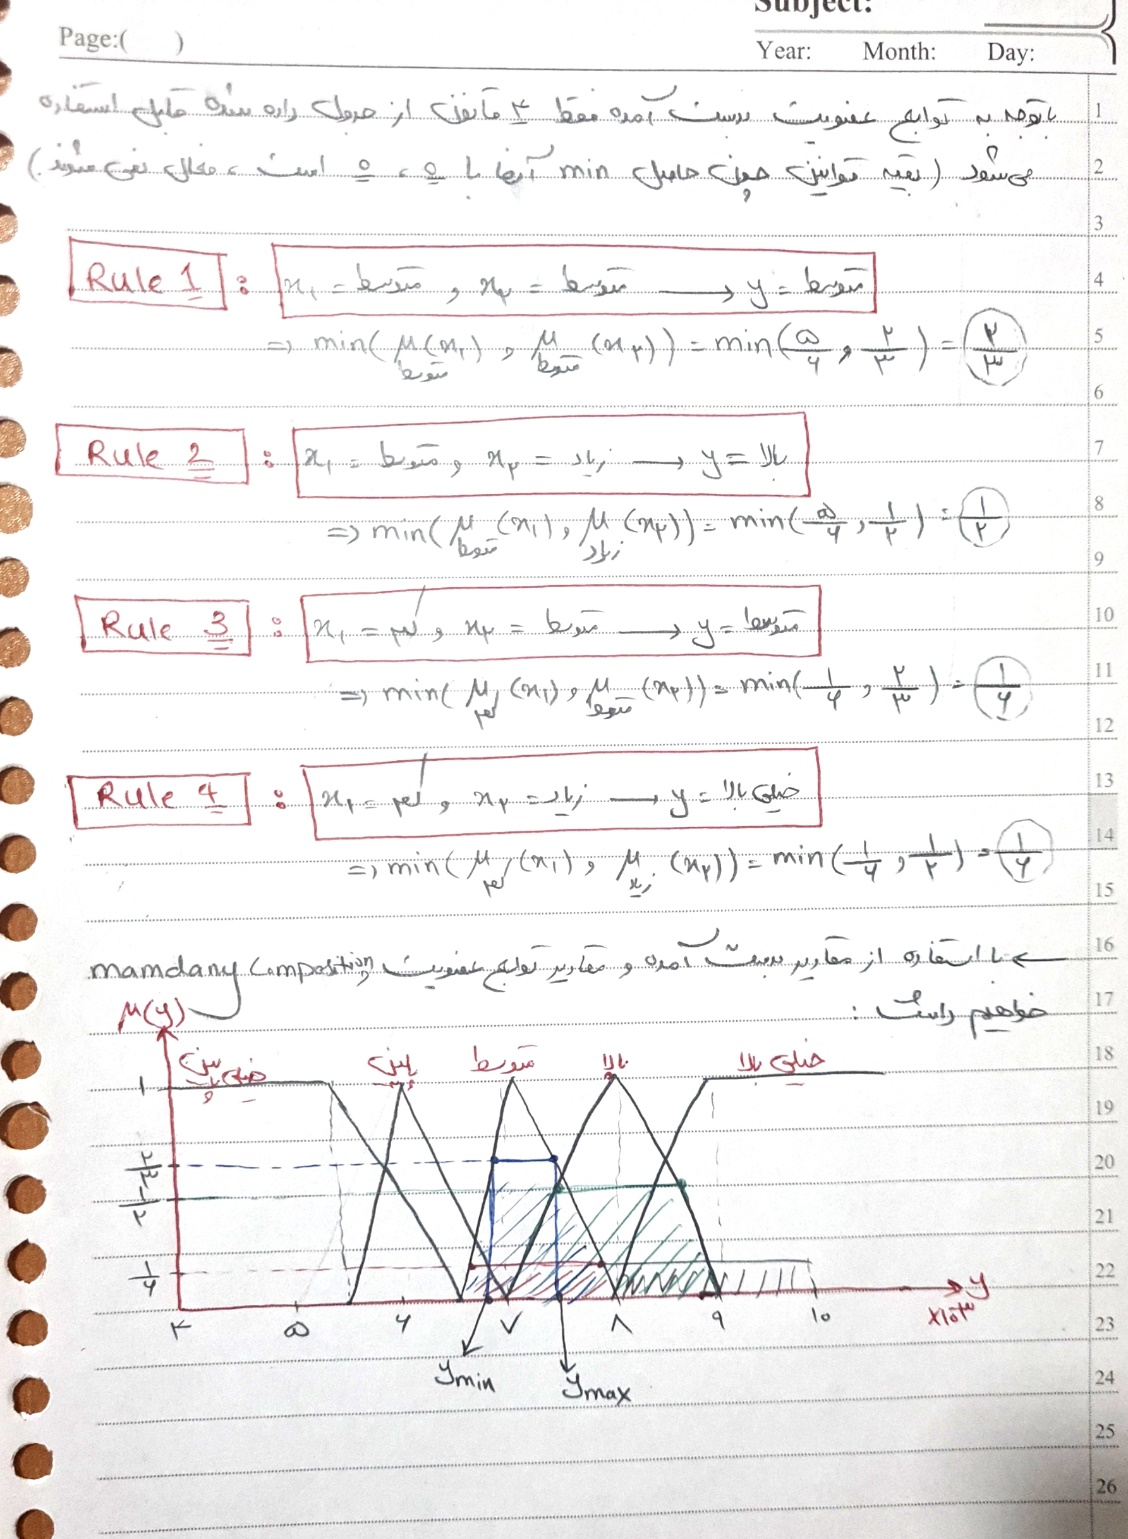 Subject:
Page:( )
Year: Month: Day:
با توجه به توابع عضویت بدست آمده فقط ۴ قانون از جدول داده شده قابل استفاده
می‌شود (بقیه قوانین چون حاصل min آنها با ه، ه است، فعال نمی‌شوند.)
Rule 1 : x₁ = متوسط و x₂ = متوسط → y = متوسط
=> min( μ متوسط (x₁) , μ متوسط (x₂)) = min(۵/۶ , ۲/۳) = ۲/۳
Rule 2 : x₁ = متوسط و x₂ = زیاد → y = بالا
=> min( μ متوسط (x₁), μ زیاد (x₂)) = min(۵/۶ , ۱/۲) = ۱/۲
Rule 3 : x₁ = کم و x₂ = متوسط → y = متوسط
=> min( μ کم (x₁), μ متوسط (x₂)) = min(۱/۶ , ۲/۳) = ۱/۶
Rule 4 : x₁ = کم و x₂ = زیاد → y = خیلی بالا
=> min( μ کم (x₁), μ زیاد (x₂)) = min(۱/۶ , ۱/۲) = ۱/۶
← با استفاده از مقادیر بدست آمده و مقادیر توابع عضویت mamdany Composition
خواهیم داشت :
μ(y)
خیلی پایین پایین متوسط بالا خیلی بالا
۱
۲/۳
۱/۲
۱/۶
۴ ۵ ۶ ۷ ۸ ۹ ۱۰ y
×۱۰^۳
ymin ymax
1
2
3
4
5
6
7
8
9
10
11
12
13
14
15
16
17
18
19
20
21
22
23
24
25
26